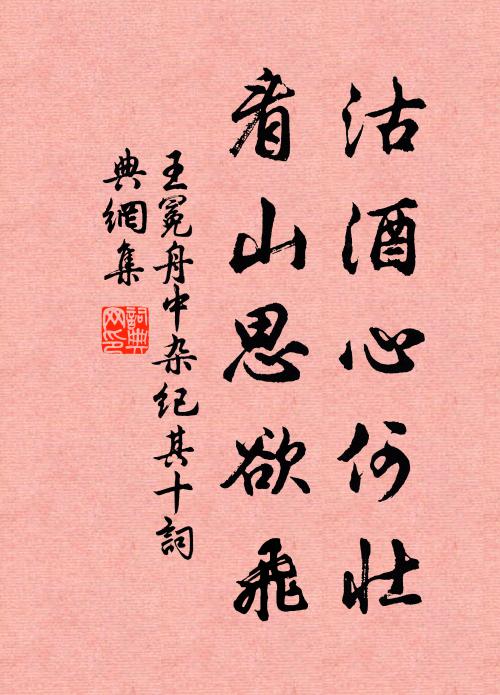 沽酒心何壮
看山思欲飛
王冕舟中杂纪其十詞
典網集
詞典
网印